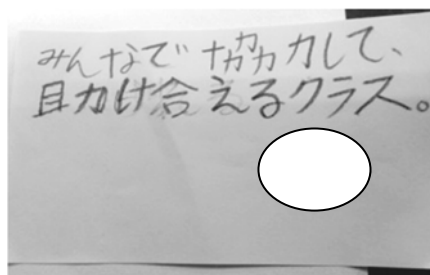 みんなで協力して、
助け合えるクラス。